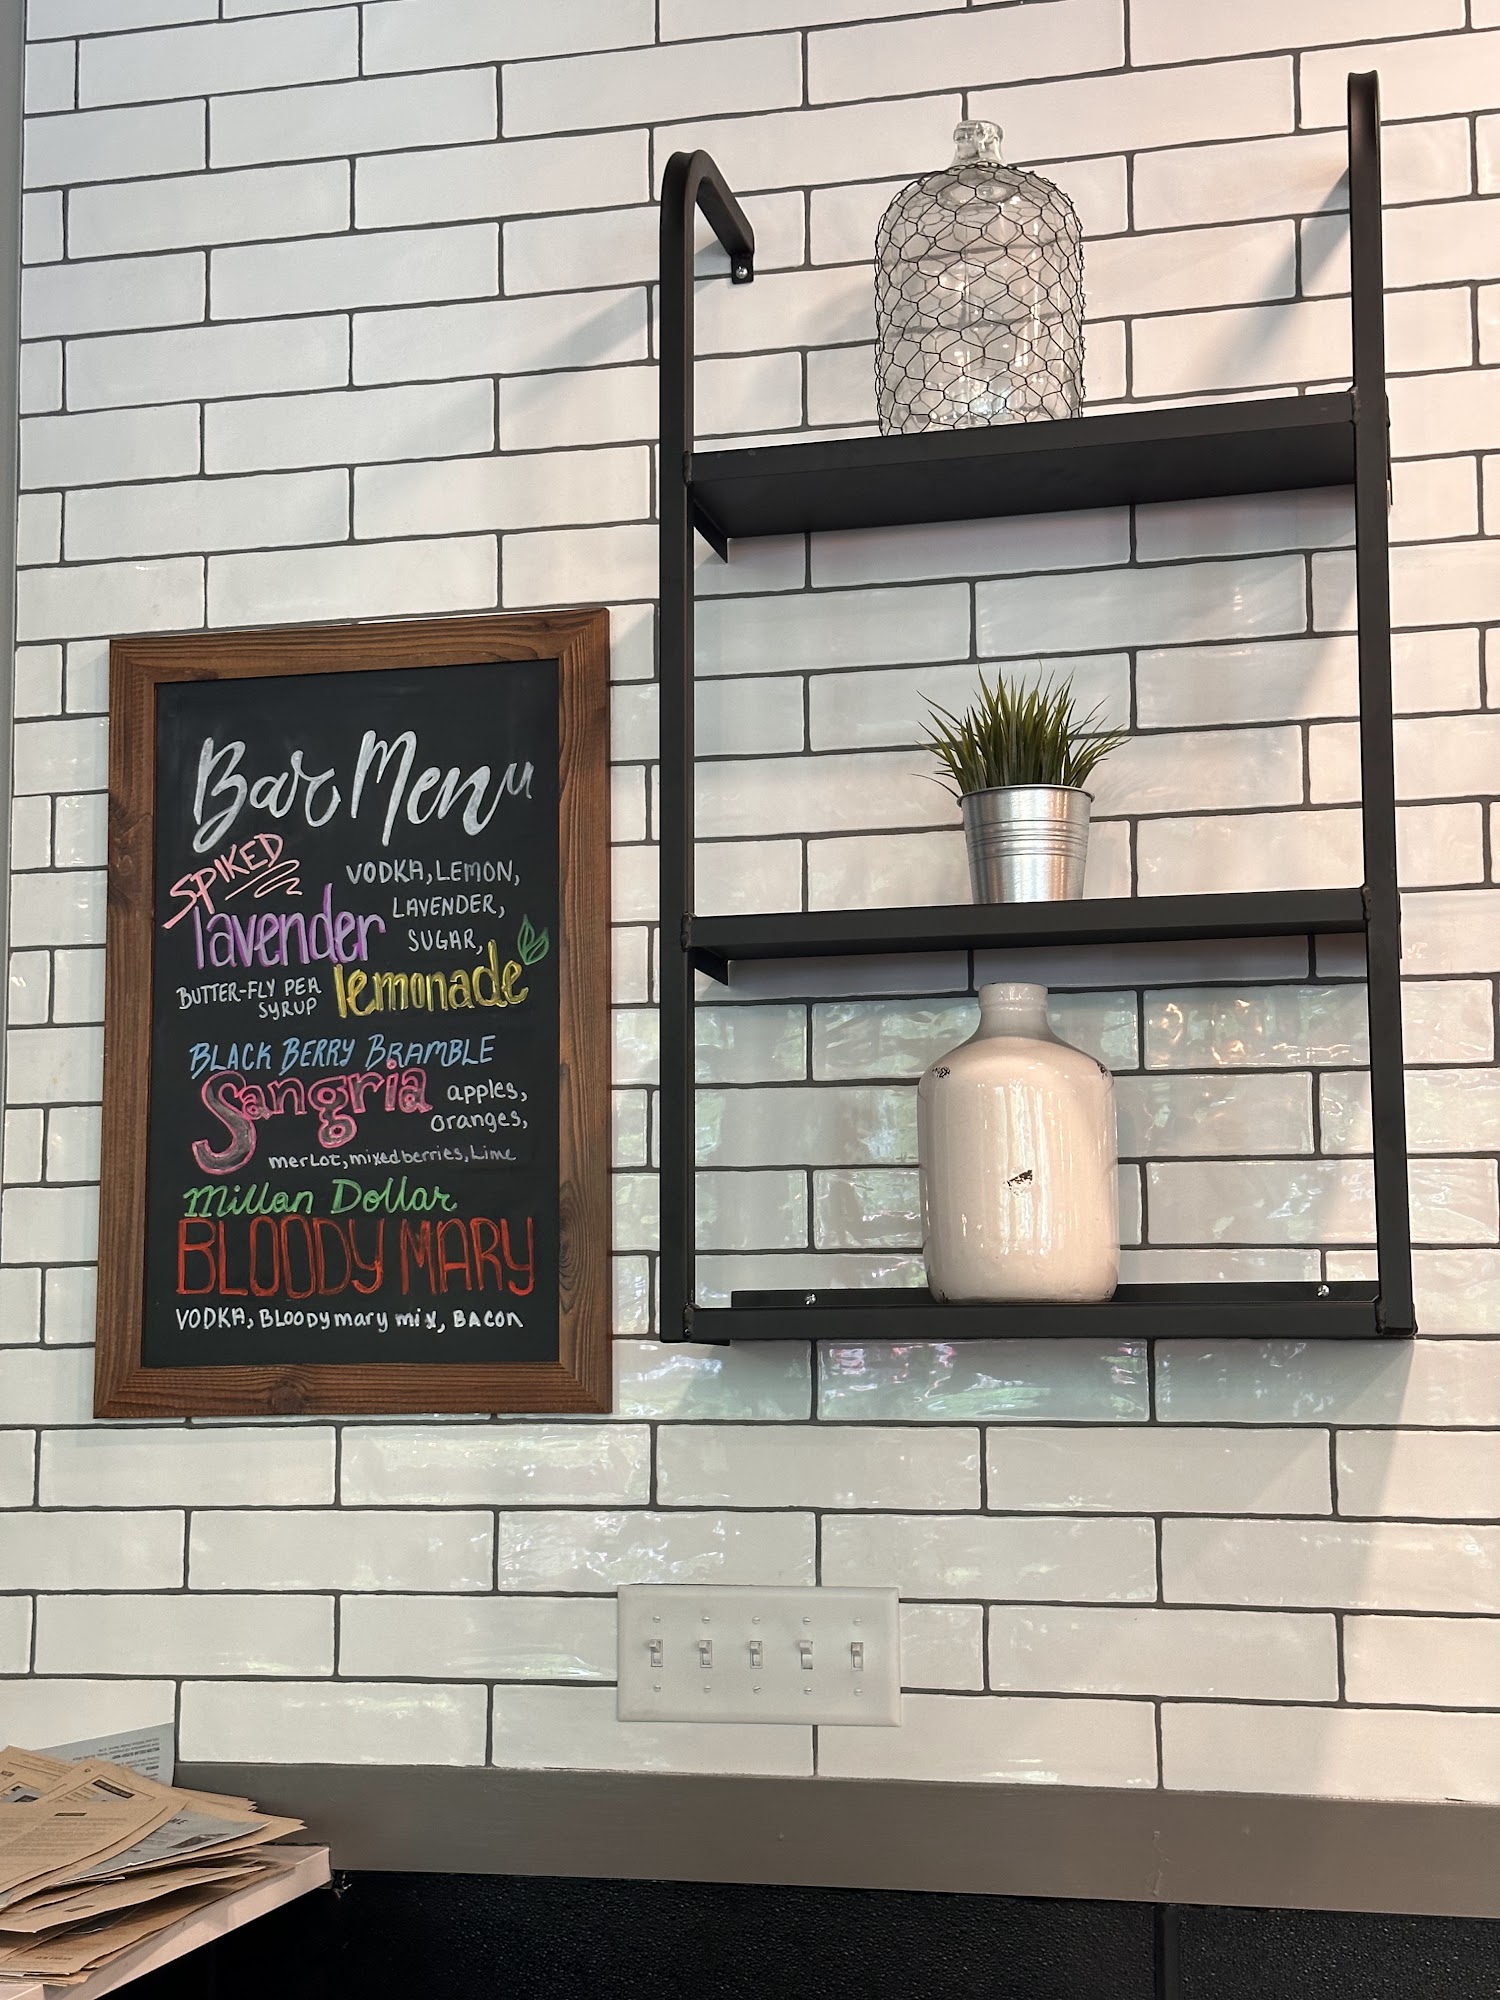 Bar Menu
SPIKED
lavender
lemonade
VODKA, LEMON,
LAVENDER,
SUGAR,
BUTTER-FLY PEA
SYRUP
BLACK BERRY BRAMBLE
Sangria
apples,
oranges,
merlot, mixed berries, Lime
Millan Dollar
BLOODY MARY
VODKA, BLOODY mary mix, BACON